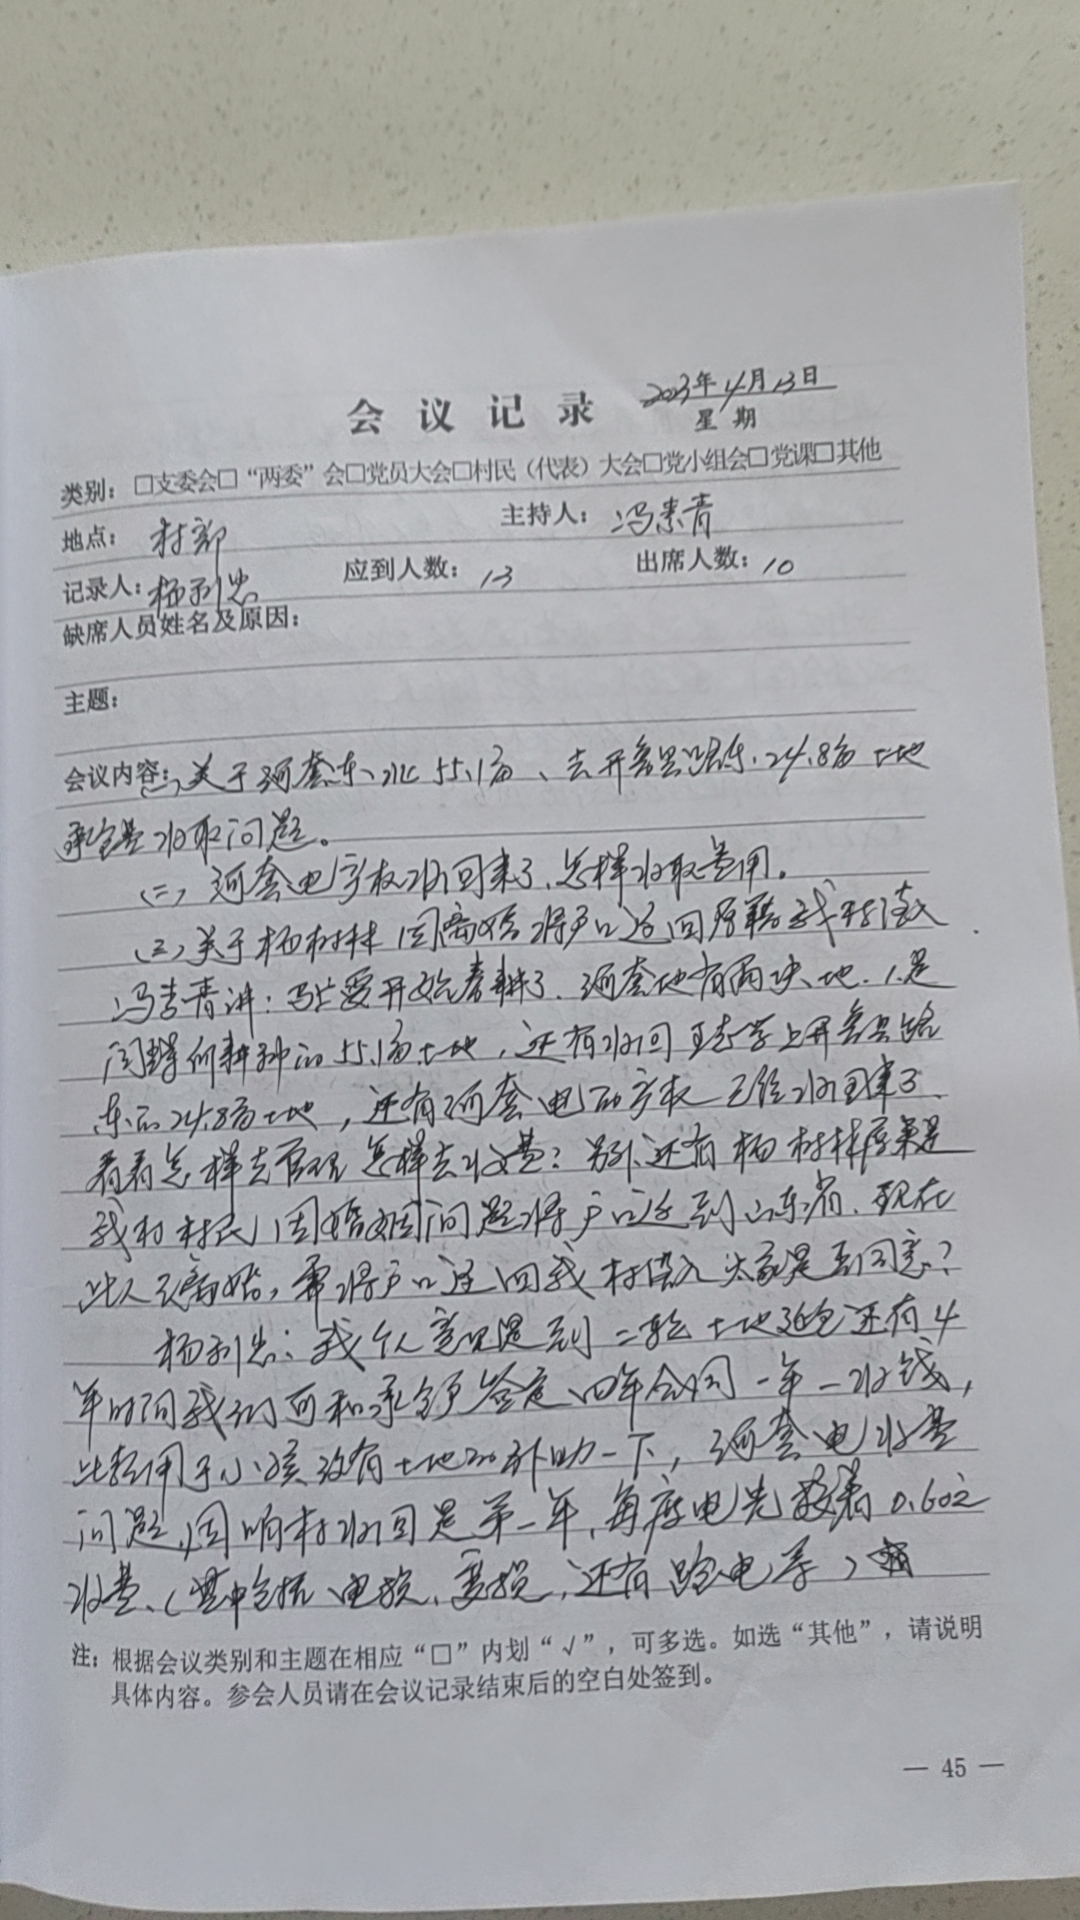 会议记录 2023年4月13日
星期
类别：□支委会□“两委”会□党员大会□村民（代表）大会□党小组会□党课□其他
地点：村部 主持人：冯素青
记录人：杨利忠 应到人数：13 出席人数：10
缺席人员姓名及原因：
主题：
会议内容：(一)关于河套东、北55.1亩、去开 东.24.8亩土地
承包费收取问题。
(二)河套电字权收回来了、怎样收取费用。
(三)关于杨树林因离婚将户口迁回原籍我村落入
冯素青讲：马上要开始春耕了、河套地有两块地.1.是
闫 何耕种的55.1亩土地，还有收回 学上开
东的24.8亩土地，还有河套电的产权已经收回来了、
看看怎样去管理怎样去收费？另外还有杨树林原来是
我村村民，因婚姻问题将户口迁到山东省、现在
此人已离婚，需将户口迁回我村落入大家是否同意？
杨利忠：我个人意见是到二轮土地延包还有4
年时间我们可和承包户签定四年合同一年一收钱，
此款用于小孩没有土地的补助一下，河套电收费
问题，因咱村收回是第一年、每度电先按着0.602
收费、（其中包括电损、变损，还有 电等）
注：根据会议类别和主题在相应“□”内划“√”，可多选。如选“其他”，请说明
具体内容。参会人员请在会议记录结束后的空白处签到。
— 45 —